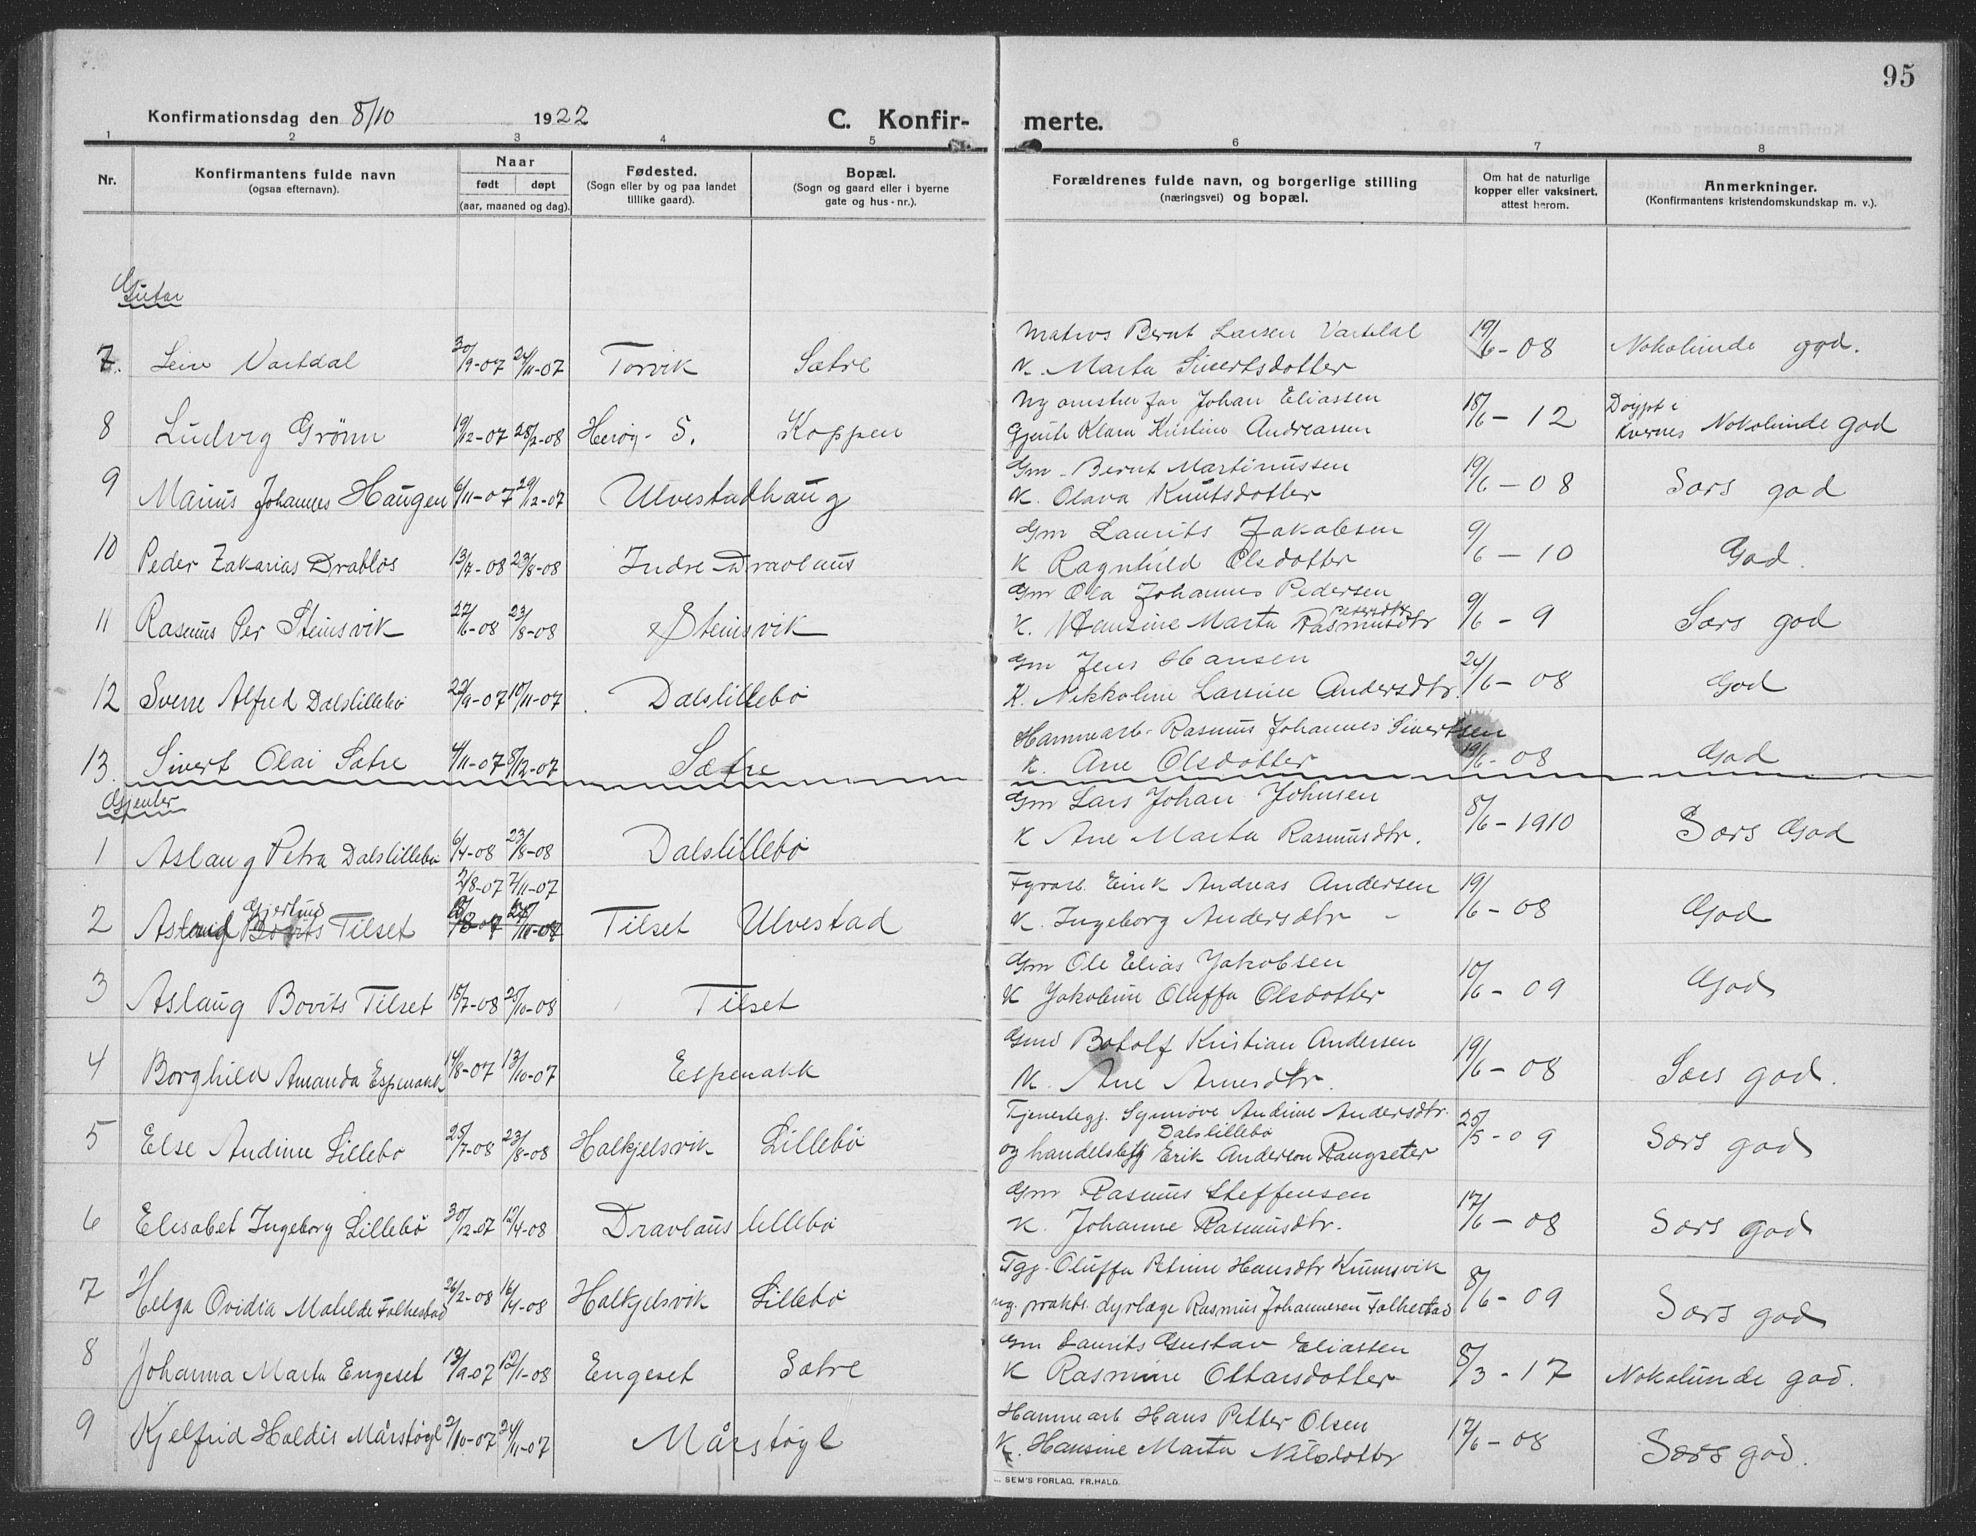 95
Konfirmationsdag den 8/10 1922 C. Konfir- merte.
1 2 3 4 5 6 7 8
Nr. Konfirmantens fulde navn (ogsaa efternavn). Naar født døpt (aar, maaned og dag). Fødested. (Sogn eller by og paa landet tillike gaard). Bopæl. (Sogn og gaard eller i byerne gate og hus-nr.). Forældrenes fulde navn, og borgerlige stilling (næringsvei) og bopæl. Om hat de naturlige kopper eller vaksinert, attest herom. Anmerkninger. (Konfirmantens kristendomskundskap m. v.).
Gutar
Matros Bernt Larsen Vartdal
7. Leiv Vartdal 30/9-07 24/11-07 Torvik Sætre K. Marta Sivertsdotter 19/6-08 Nokolunde god.
Johan Eliassen
8 Ludvig Grönn 19/12-07 28/2-08 Herøy-S. Koppen Gjerute Klara Kristine Andreassen 18/6-12 Døypt i Kvernes Nokolunde god
Gm. Bernt Martinussen
9 Marius Johannes Haugen 6/11-07 29/12-07 Ulvestadhaug K. Olava Knutsdotter 19/6-08 Særs god
Gm Laurits Jakobsen
10 Peder Zakarias Drabløs 13/4-08 23/8-08 Indre-Dravlaus K Ragnhild Olsdotter 9/6-10 God.
Gm Ola Johannes Pedersen
11 Rasmus Per Steinsvik 27/6-08 23/8-08 Steinsvik K. Hansine Marta Rasmusdtr Pedersdtr 9/6-9 Særs god
Gm Jens Hansen
12 Sverre Alfred Dalslillebø 22/9-07 10/11-07 Dalslillebø K. Nikkoline Larsine Andersdtr. 24/6-08 God
Hammarb. Rasmus Johannes Sivertsen
13. Sivert Olai Sætre 4/11-07 8/12-07 Sætre K. Ane Olsdotter 19/6-08 God
Gjenter
Gm Lars Johan Johnsen
1 Aslaug Petra Dalslillebø 6/4-08 23/8-08 Dalslillebø K Ane Marta Rasmusdtr. 8/6-1910 Særs God
2/8-07 7/11-07 Fyrarb. Eirik Andreas Andersen
2 Astrid Gjerlaug Bovits Tilset Tilset Ulvestad K. Ingeborg Andersdtr - 19/6-08 God
Gm Ole Elias Jakobsen
3 Aslaug Bovits Tilset 15/7-08 25/10-08 Tilset K Jakobine Oluffa Olsdotter 10/6-09 God
Gmd Botolf Kristian Andersen
4 Borghild Amanda Espenakk 14/8-07 13/10-07 Espenakk K. Ane Arnesdtr. 19/6-08 Særs god.
Tjenestegj. Synnøve Andine Andersdtr. Dalslillebø
5 Else Andine Lillebø 25/7-08 23/8-08 Halkjelsvik Lillebø og handelsbetj Erik Anderson Rangseter 25/5-09 Særs god
Gm Rasmus Steffensen
6 Elisabet Ingeborg Lillebø 30/12-07 12/4-08 Dravlaus lillebø K. Johanne Rasmusdtr. 17/6-08 Særs god
Tgj. Oluffa Petrine Hansdtr Kurnsvik
7 Helga Ovidia Matilde Folkestad 26/2-08 16/4-08 Halkjelsvik Lillebø og prakts. dyrlæge Rasmus Johannesen Folkestad 8/6-09 Særs god
Gm Laurits Gustav Eliassen
8 Johanna Marta Engeset 13/9-07 12/1-08 Engeset Sætre K Rasmine Ottarsdotter 8/3-17 Nokolunde god.
Hammarb Hans Petter Olsen
9 Kjelfrid Haldis Mårstøyl 2/10-07 24/11-07 Mårstøyl K. Hansine Marta Nilsdotter 17/6-08 Særs god.
SEM'S FORLAG, FR.HALD.